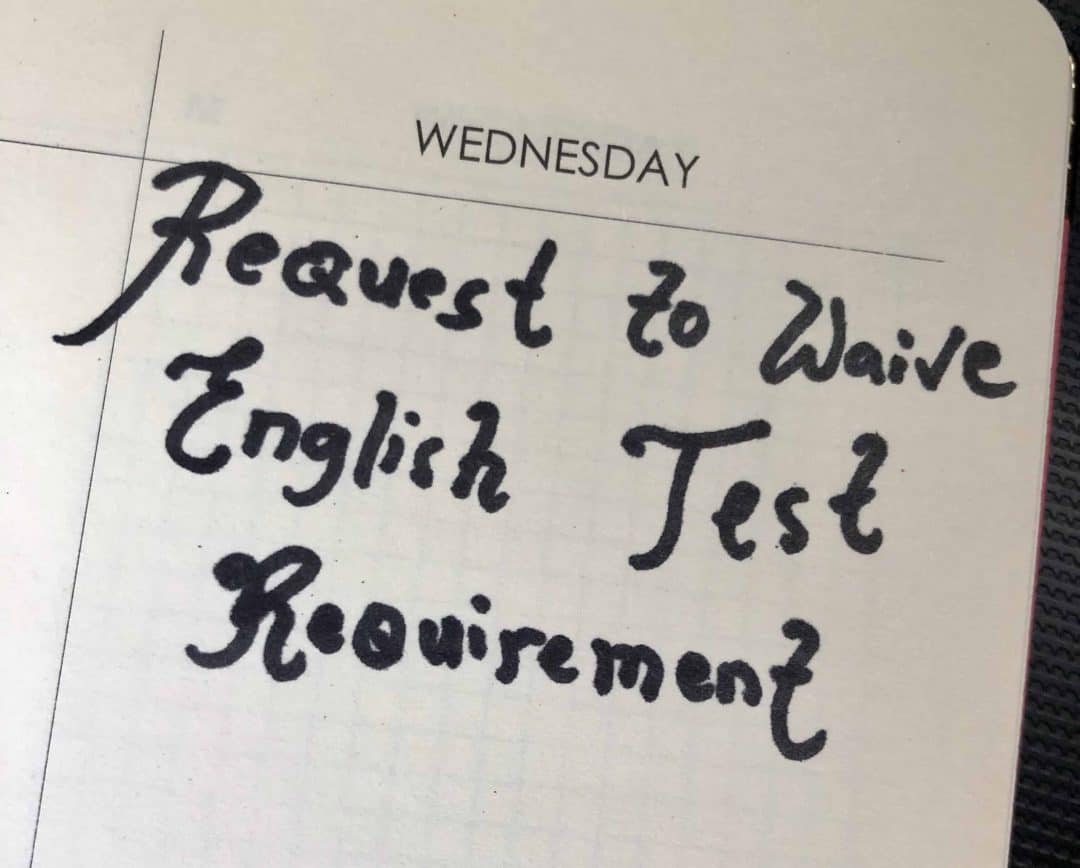 WEDNESDAY
Request to Waive
English Test
Requirement